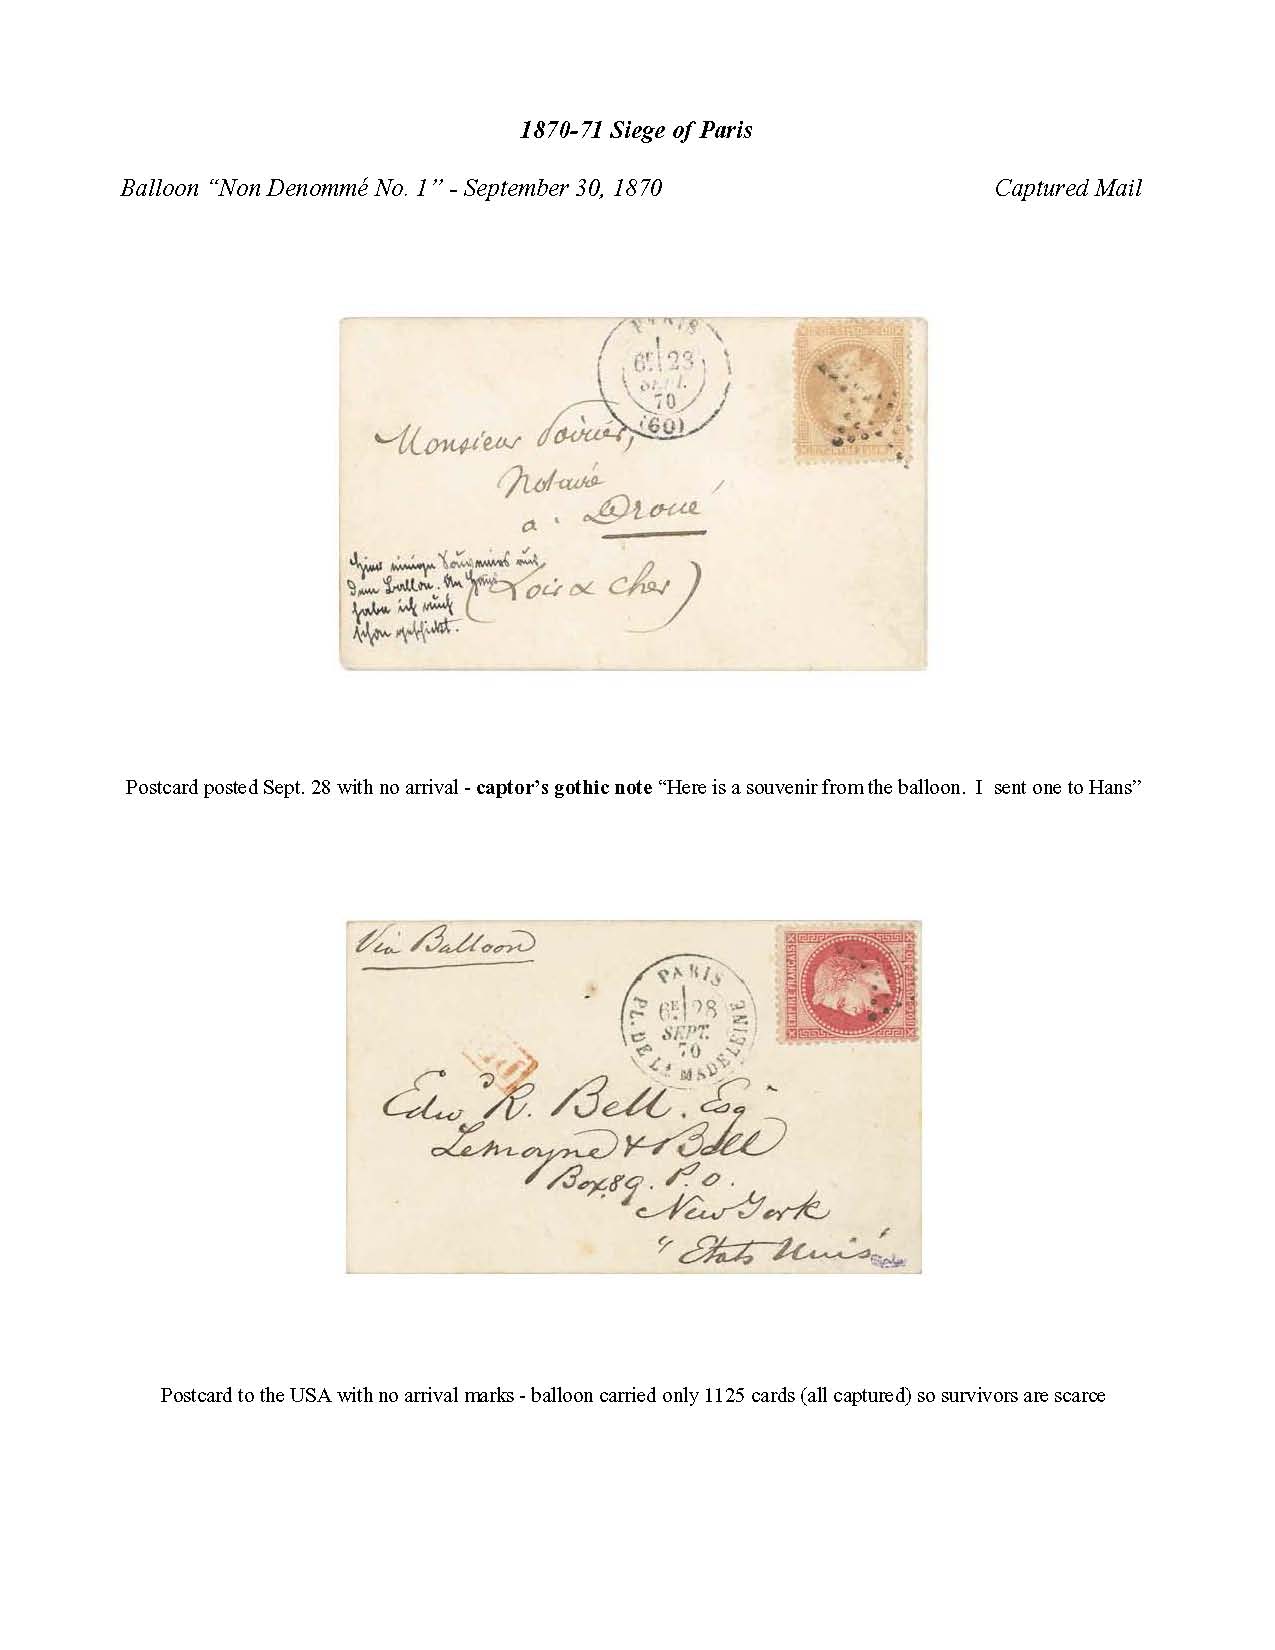 1870-71 Siege of Paris
Balloon “Non Denommé No. 1” - September 30, 1870 Captured Mail
PARIS
6E 28
SEPT.
70
(60)
Monsieur
Notaire
a Droué
(Loir & Cher)
Hier einige Souvenirs aus
dem Ballon. An Hans
habe ich auch
schon geschickt.
Postcard posted Sept. 28 with no arrival - captor’s gothic note “Here is a souvenir from the balloon. I sent one to Hans”
Via Balloon
PARIS
6E 28
SEPT.
70
PL. DE LA MADELEINE
EMPIRE FRANÇAIS
Edw R. Bell. Esq
Lemoyne & Bell
Box 89. P.O.
New York
"Etats Unis"
Postcard to the USA with no arrival marks - balloon carried only 1125 cards (all captured) so survivors are scarce